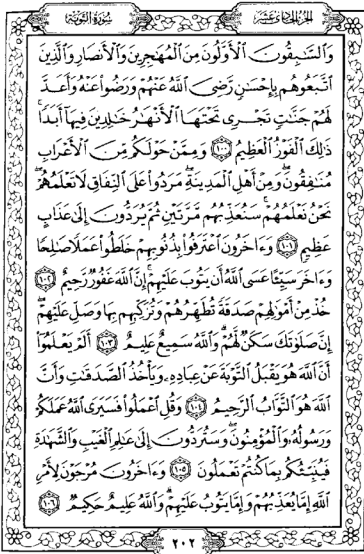 الجزء الحادي عشر
سورة التوبة
وَٱلسَّٰبِقُونَ ٱلْأَوَّلُونَ مِنَ ٱلْمُهَٰجِرِينَ وَٱلْأَنصَارِ وَٱلَّذِينَ
ٱتَّبَعُوهُم بِإِحْسَٰنٍ رَّضِىَ ٱللَّهُ عَنْهُمْ وَرَضُوا۟ عَنْهُ وَأَعَدَّ
لَهُمْ جَنَّٰتٍ تَجْرِى تَحْتَهَا ٱلْأَنْهَٰرُ خَٰلِدِينَ فِيهَآ أَبَدًا ۚ
ذَٰلِكَ ٱلْفَوْزُ ٱلْعَظِيمُ ١٠٠ وَمِمَّنْ حَوْلَكُم مِّنَ ٱلْأَعْرَابِ
مُنَٰفِقُونَ ۖ وَمِنْ أَهْلِ ٱلْمَدِينَةِ ۖ مَرَدُوا۟ عَلَى ٱلنِّفَاقِ لَا تَعْلَمُهُمْ ۖ
نَحْنُ نَعْلَمُهُمْ ۚ سَنُعَذِّبُهُم مَّرَّتَيْنِ ثُمَّ يُرَدُّونَ إِلَىٰ عَذَابٍ
عَظِيمٍ ١٠١ وَءَاخَرُونَ ٱعْتَرَفُوا۟ بِذُنُوبِهِمْ خَلَطُوا۟ عَمَلًا صَٰلِحًا
وَءَاخَرَ سَيِّئًا عَسَى ٱللَّهُ أَن يَتُوبَ عَلَيْهِمْ ۚ إِنَّ ٱللَّهَ غَفُورٌ رَّحِيمٌ ١٠٢
خُذْ مِنْ أَمْوَٰلِهِمْ صَدَقَةً تُطَهِّرُهُمْ وَتُزَكِّيهِم بِهَا وَصَلِّ عَلَيْهِمْ ۖ
إِنَّ صَلَوٰتَكَ سَكَنٌ لَّهُمْ ۗ وَٱللَّهُ سَمِيعٌ عَلِيمٌ ١٠٣ أَلَمْ يَعْلَمُوٓا۟
أَنَّ ٱللَّهَ هُوَ يَقْبَلُ ٱلتَّوْبَةَ عَنْ عِبَادِهِۦ وَيَأْخُذُ ٱلصَّدَقَٰتِ وَأَنَّ
ٱللَّهَ هُوَ ٱلتَّوَّابُ ٱلرَّحِيمُ ١٠٤ وَقُلِ ٱعْمَلُوا۟ فَسَيَرَى ٱللَّهُ عَمَلَكُمْ
وَرَسُولُهُۥ وَٱلْمُؤْمِنُونَ ۖ وَسَتُرَدُّونَ إِلَىٰ عَٰلِمِ ٱلْغَيْبِ وَٱلشَّهَٰدَةِ
فَيُنَبِّئُكُم بِمَا كُنتُمْ تَعْمَلُونَ ١٠٥ وَءَاخَرُونَ مُرْجَوْنَ لِأَمْرِ
ٱللَّهِ إِمَّا يُعَذِّبُهُمْ وَإِمَّا يَتُوبُ عَلَيْهِمْ ۗ وَٱللَّهُ عَلِيمٌ حَكِيمٌ ١٠٦
٢٠٢